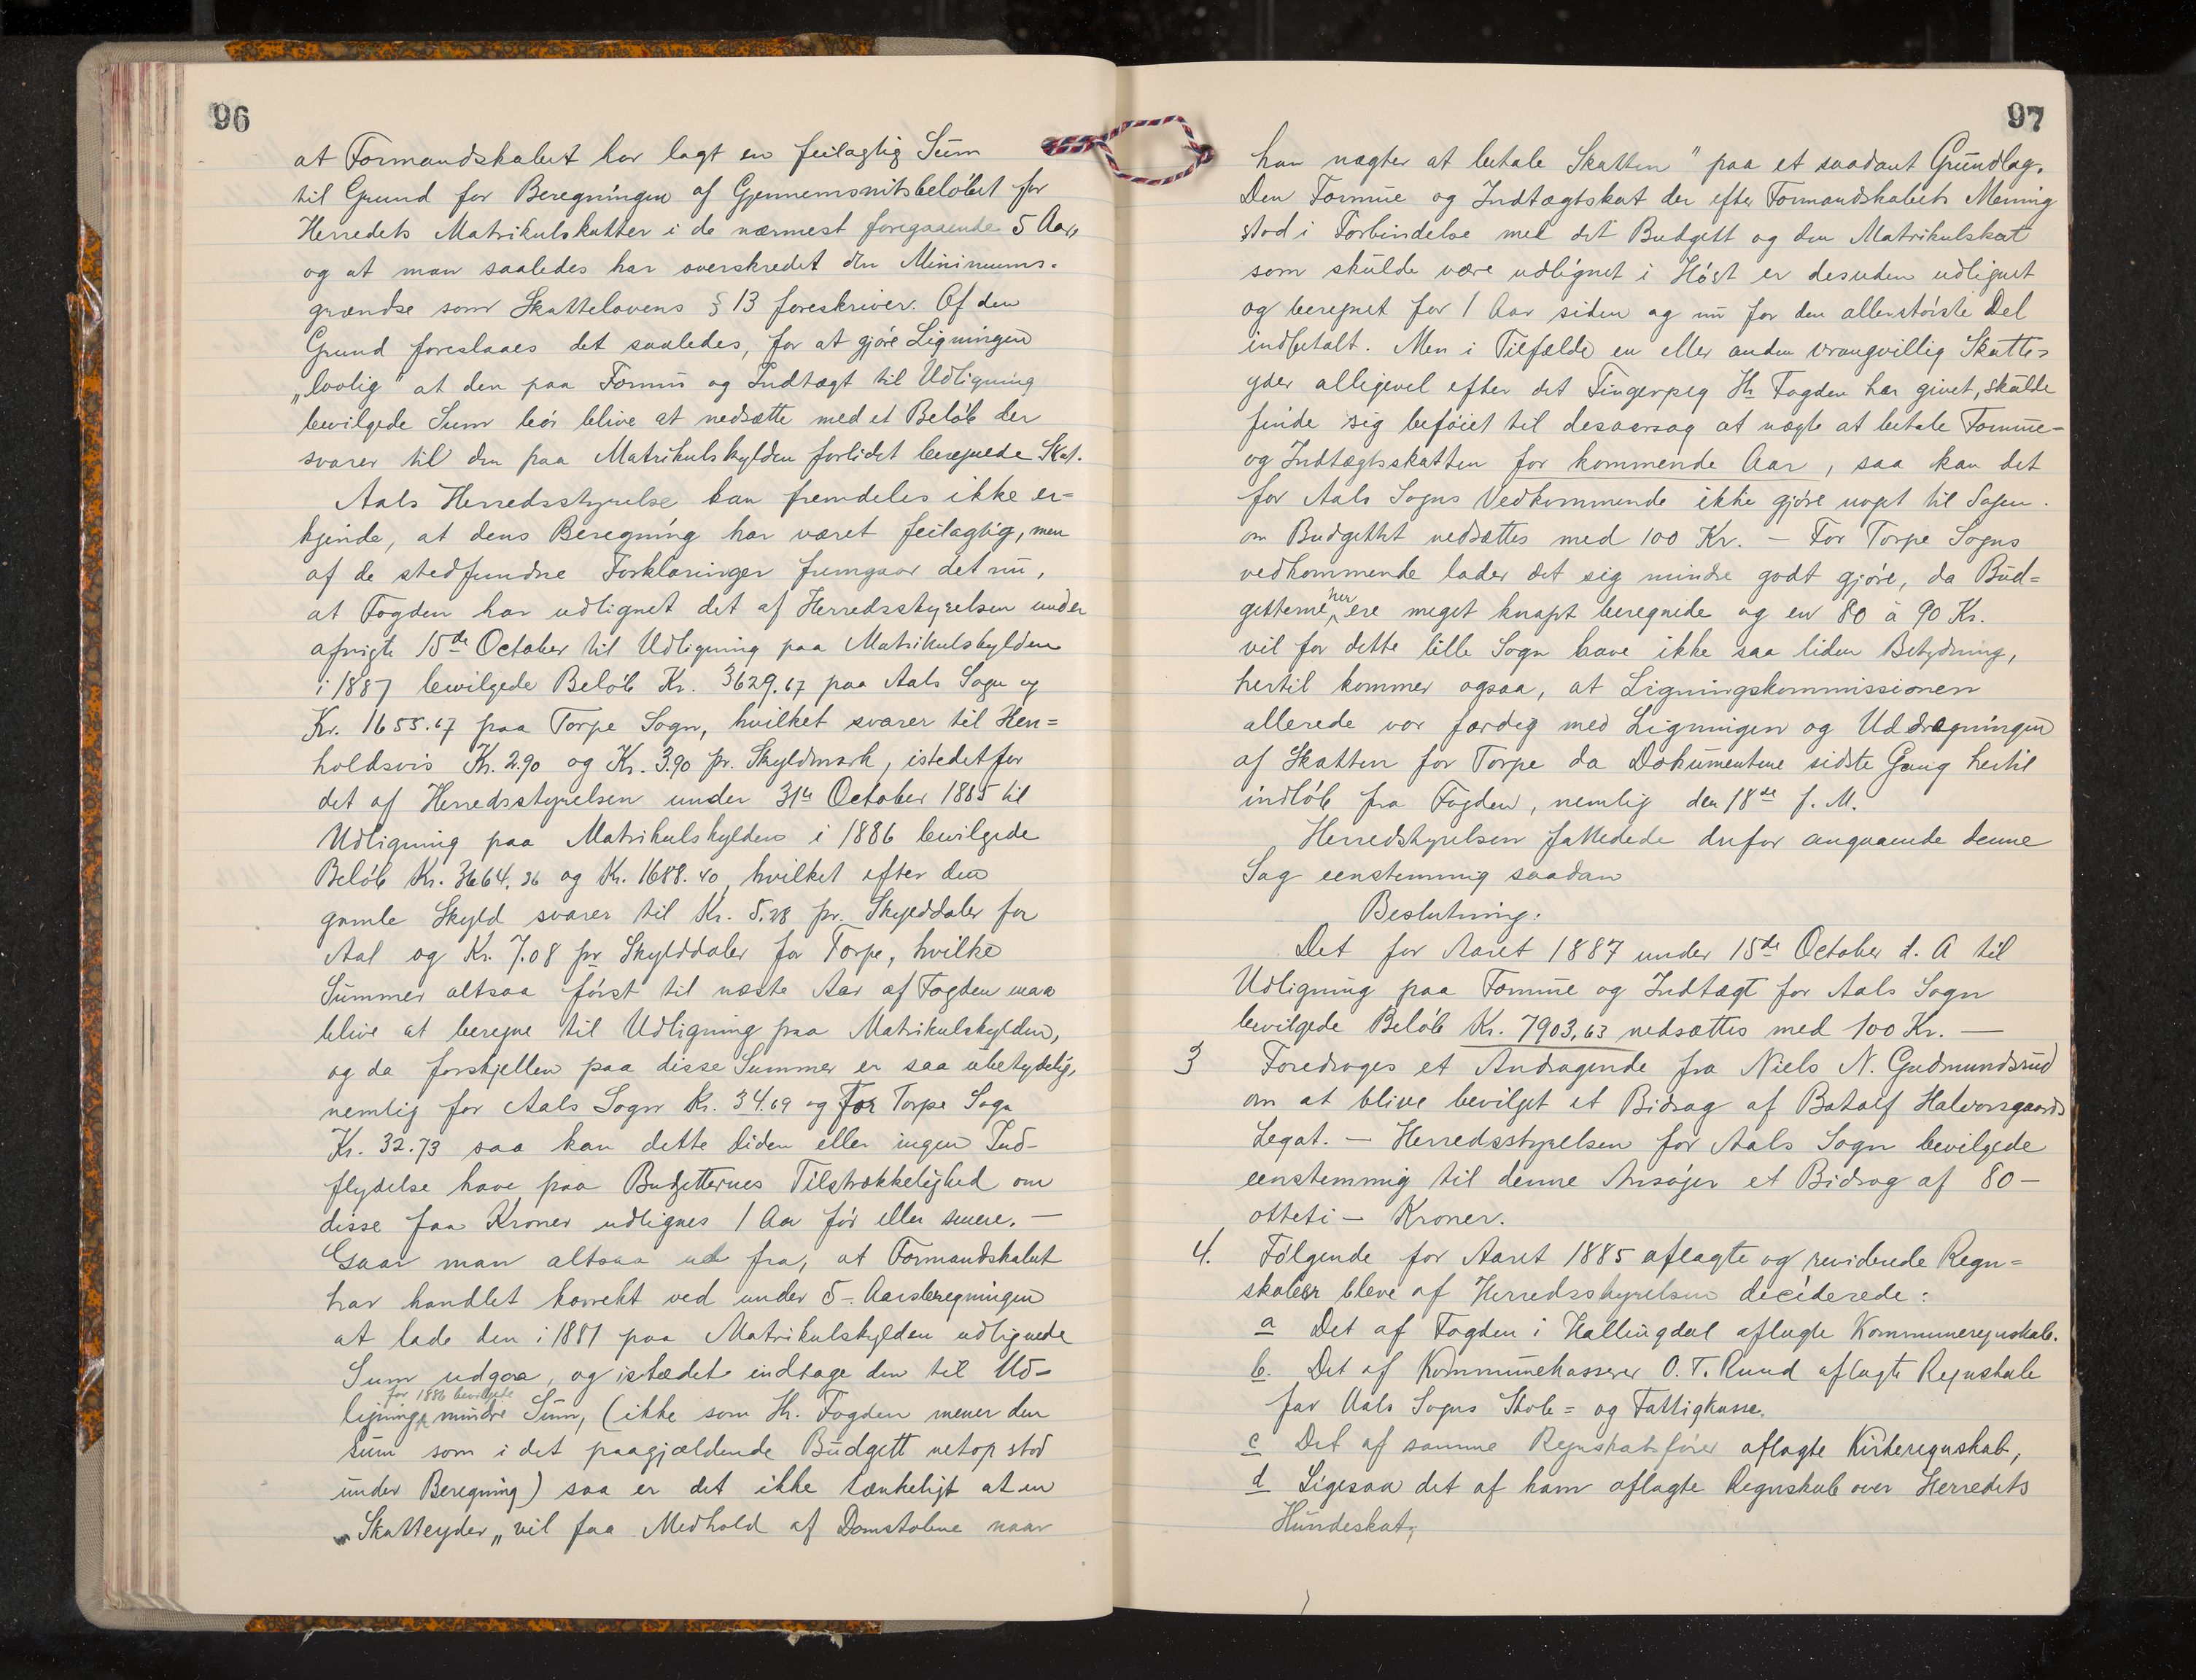 96
at Formandskabet har lagt en feilagtig Sum
til Grund for Beregningen af Gjennemsnitsbeløbet for
Herredets Matrikulskatter i de nærmest foregaaende 5 Aar,
og at man saaledes har overskredet den Minimums-
grændse som Skattelovens § 13 foreskriver. Af den
Grund foreslaaes det saaledes, for at gjøre Ligningen
„lovlig" at den paa Formue og Indtægt til Udligning
bevilgede Sum bør blive at nedsætte med et Beløb der
svarer til den paa Matrikulskylden forlidet beregnede Skat.
Aals Herredsstyrelse kan fremdeles ikke er=
kjende, at dens Beregning har været feilagtig, men
af de stedfundne Forklaringer fremgaar det nu,
at Fogden har udlignet det af Herredsstyrelsen under
afvigte 15de October til Udligning paa Matrikulskylden
i 1887 bevilgede Beløb Kr. 3629.67 paa Aals Sogn og
Kr. 1655.67 paa Torpe Sogn, hvilket svarer til Hen=
holdsvis Kr. 2.90 og Kr. 3.90 pr. Skyldmark, istedetfor
det af Herredsstyrelsen under 31te October 1885 til
Udligning paa Matrikulskylden i 1886 bevilgede
Beløb Kr. 3664.36 og Kr. 1688.40, hvilket efter den
gamle Skyld svarer til Kr. 5.28 pr. Skylddaler for
Aal og Kr. 7.08 pr Skylddaler for Torpe, hvilke
Summer altsaa først til næste Aar af Fogden maa
blive at beregne til Udligning paa Matrikulskylden,
og da forskjellen paa disse Summer er saa ubetydelig,
nemlig for Aals Sogn Kr. 34.69 og For Torpe Sogn
Kr. 32.73 saa kan dette liden eller ingen Ind-
flydelse have paa Budgetternes Tilstrækkelighed om
disse faa Kroner udlignes 1 Aar før eller senere. —
Gaar man altsaa ud fra, at Formandskabet
har handlet korrekt ved under 5-Aarsberegningen
at lade den i 1881 paa Matrikulskylden udlignede
Sum udgaa, og istædet indtage den til Ud-
for 1886 bevilgede
ligning mindre Sum, (ikke som Hr. Fogden mener den
Sum som i det paagjældende Budgett netop stod
under Beregning) saa er det ikke tænkeligt at en
„Skatteyder„ vil faa Medhold af Domstolene naar
97
han nægter at betale Skatten " paa et saadant Grundlag.
Den Formue og Indtægtskat der efter Formandskabets Mening
stod i Forbindelse med det Budgett og den Matrikulskat
som skulde være udlignet i Høst er desuden udlignet
og beregnet for 1 Aar siden og nu for den allerstørste Del
indbetalt. Men i Tilfælde en eller anden vrangvillig Skatte=
yder alligevel efter det Fingerpeg Hr. Fogden har givet, skulde
finde sig beføiet til desaarsag at nægte at betale Formue-
og Indtægtsskatten for kommende Aar, saa kan det
for Aals Sogns Vedkommende ikke gjøre noget til Sagen.
om Budgettet nedsættes med 100 Kr. — For Torpe Sogns
vedkommende lader det sig mindre godt gjøre, da Bud=
getterne her ere meget knapt beregnede og en 80 à 90 Kr.
vil for dette lille Sogn have ikke saa liden Betydning,
hertil kommer ogsaa, at Ligningskommissionen
allerede var færdig med Ligningen og Uddragningen
af Skatten for Torpe da Dokumentene sidste Gang hertil
indløb fra Fogden, nemlig den 18de f. M.
Herredstyrelsen fattedede derfor angaaende denne
Sag eenstemmig saadan
Beslutning:
Det for Aaret 1887 under 15de October d. A til
Udligning paa Formue og Indtægt for Aals Sogn
bevilgede Beløb Kr. 7903,63 nedsættes med 100 Kr. —
3 Foredroges et Andragende fra Niels N. Gudmundsrud
om at blive bevilget et Bidrag af Botolf Halvorsgaards
Legat. — Herredsstyrelsen for Aals Sogn bevilgede
eenstemmig til denne Ansøger et Bidrag af 80 —
otteti — Kroner.
4. Følgende for Aaret 1885 aflagte og reviderede Regn=
skaber bleve af Herredsstyrelsen deciderede:
a Det af Fogden i Hallingdal aflagte Kommuneregnskab.
b. Det af Kommunekasserer O. T. Ruud aflagte Regnskab
for Aals Sogns Skole= og Fattigkasse.
c Det af samme Regnskabsfører aflagte Kirkeregnskab,
d Ligesaa det af ham aflagte Regnskab over Herredets
Hundeskat,